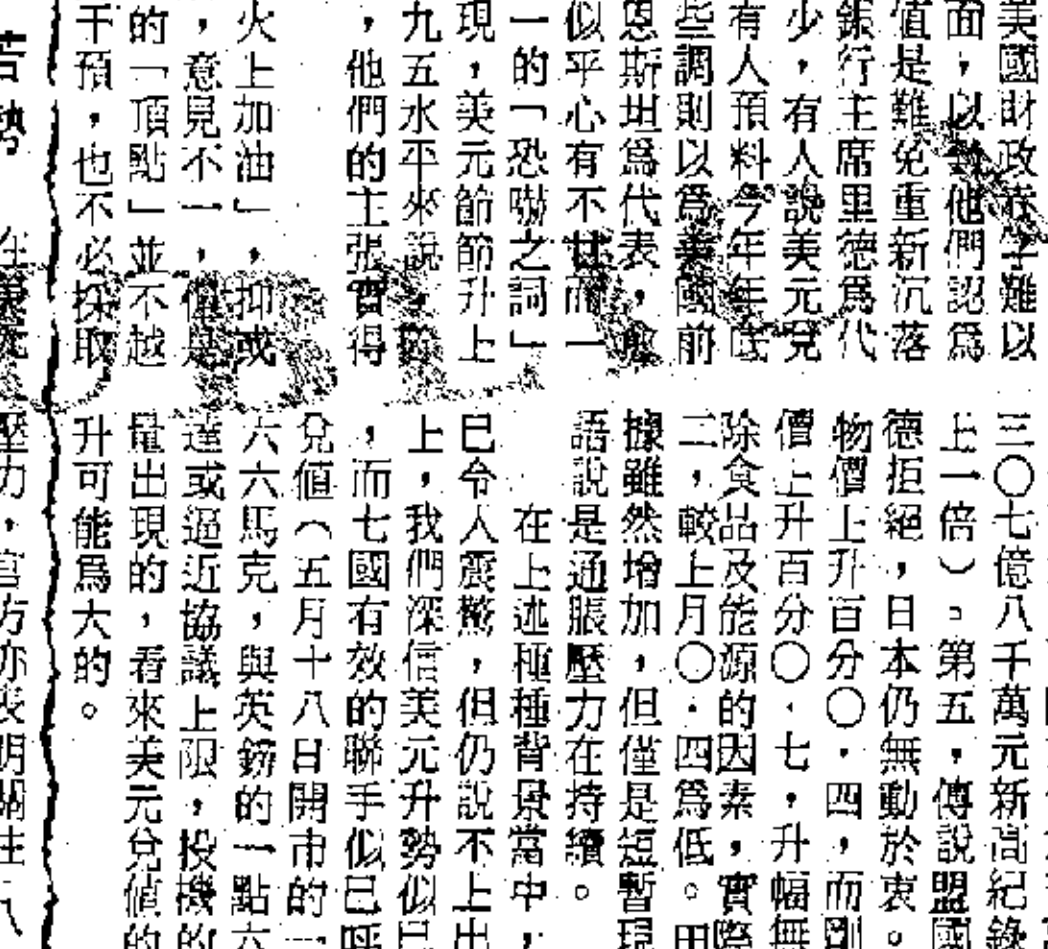 美國財政
難以
面，以
他們認爲
値是難免重新沉落
銀行主席里德爲代
少，有人說美元兌
有人預料今年年底
些調則以爲美國前
恩斯坦爲代表，
似乎心有不甘而一
一的「恐嚇之詞」
現，美元節節升上
九五水平來說，
，他們的主張實得
火上加油」，抑或
，意見不一，但是
的「頂點」並不越
干預，也不必採取
三〇七億八千萬元新高紀錄
上一倍）。第五，傳說盟國
德拒絕，日本仍無動於衷。
物價上升百分〇．四，而剛
價上升百分〇．七，升幅無
除食品及能源的因素，實際
二，較上月〇．四爲低。
據雖然增加，但僅是短暫現
語說是通脹壓力在持續。
在上述種種背景當中，
已令人震驚，但仍說不上出
上，我們深信美元升勢似已
，而七國有效的聯手似已呼
兌値（五月十八日開市的一
六六馬克，與英鎊的一點六
達或逼近協議上限，投機的
量出現的，看來美元兌値的
升可能爲大的。
壓力，官方亦表明關注